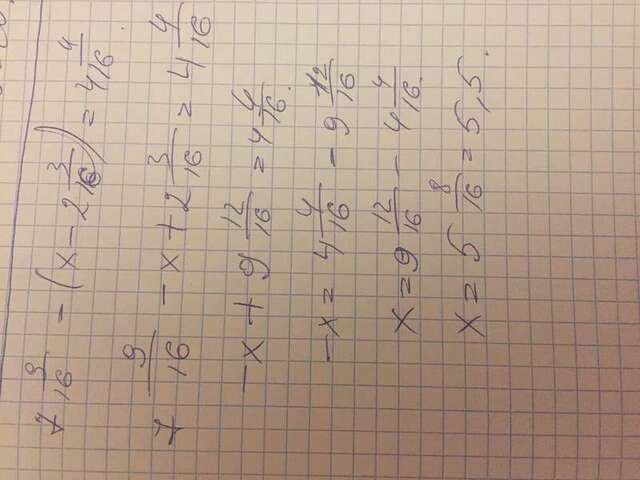 7 9/16 - (x - 2 3/16) = 4 4/16.
7 9/16 - x + 2 3/16 = 4 4/16
-x + 9 12/16 = 4 4/16.
-x = 4 4/16 - 9 12/16
x = 9 12/16 - 4 4/16.
x = 5 8/16 = 5,5.